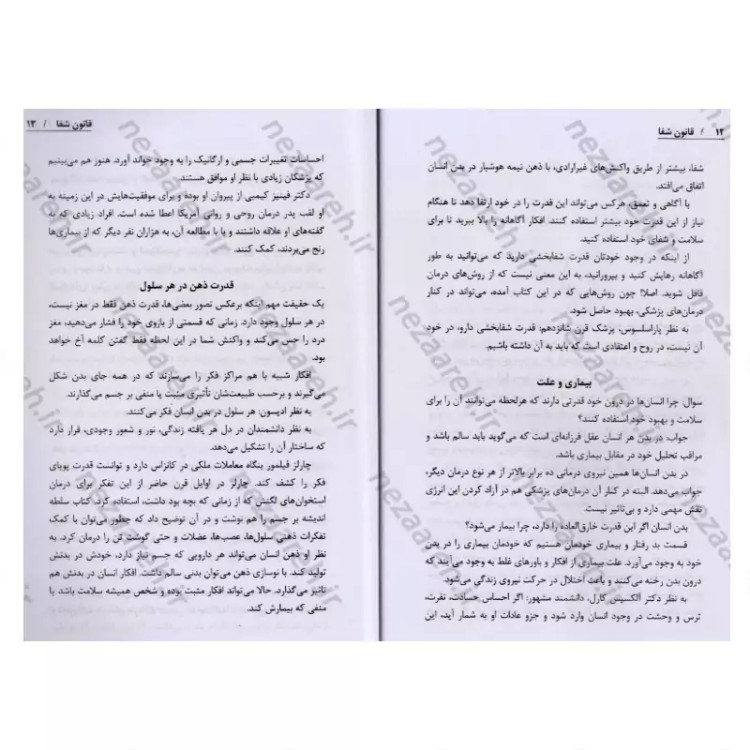 ۱۲ / قانون شفا
شفا، بیشتر از طریق واکنش‌های غیرارادی، با ذهن نیمه هوشیار در بدن انسان
اتفاق می‌افتد.
با آگاهی و تعمق، هرکس می‌تواند این قدرت را در خود ارتقا دهد تا هنگام
نیاز از این قدرت خود بیشتر استفاده کنند. افکار آگاهانه را بالا ببرید تا برای
سلامت و شفای خود استفاده کنید.
از اینکه در وجود خودتان قدرت شفابخشی دارید که می‌توانید به طور
آگاهانه رهایش کنید و بپرورانید، به این معنی نیست که از روش‌های درمان
غافل شوید. اصلا! چون روش‌هایی که در این کتاب آمده، می‌تواند در کنار
درمان‌های پزشکی، بهبود حاصل شود.
به نظر پاراسلوس، پزشک قرن شانزدهم: قدرت شفابخشی دارو، در خود
آن نیست، در روح و اعتقادی است که باید به آن داشته باشیم.
بیماری و علت
سوال: چرا انسان‌ها در درون خود قدرتی دارند که هرلحظه می‌توانند آن را برای
سلامت و بهبود خود استفاده کنند؟
جواب: در بدن هر انسان عقل فرزانه‌ای است که می‌گوید باید سالم باشد و
مراقب تحلیل خود در مقابل بیماری باشد.
در بدن انسان‌ها همین نیروی درمانی ده برابر بالاتر از هر نوع درمان دیگر،
جواب می‌دهد. البته در کنار آن درمان‌های پزشکی هم در آزاد کردن این انرژی
نقش مهمی دارد و بی‌تاثیر نیست.
بدن انسان اگر این قدرت خارق‌العاده را دارد، چرا بیمار می‌شود؟
قسمت بد رفتار و بیماری خودمان هستیم که خودمان بیماری را در بدن
خود به وجود می‌آورد. علت بیماری از افکار و باورهای غلط به وجود می‌آیند که
درون بدن رخنه می‌کنند و باعث اختلال در حرکت نیروی زندگی می‌شود.
به نظر دکتر آلکسیس کارل، دانشمند مشهور: اگر احساس حسادت، نفرت،
ترس و وحشت در وجود انسان وارد شود و جزو عادات او به شمار آید، این
قانون شفا / ۱۳
احساسات تغییرات جسمی و ارگانیک را به وجود خواهد آورد. هنوز هم می‌بینیم
که پزشکان زیادی با نظر او موافق هستند.
دکتر فینیز کیمبی از پیروان او بوده و برای موفقیت‌هایش در این زمینه به
او لقب پدر درمان روحی و روانی آمریکا اعطا شده است. افراد زیادی که به
گفته‌های او علاقه داشتند و یا با مطالعه آن، به هزاران نفر دیگر که از بیماری‌ها
رنج می‌بردند، کمک کنند.
قدرت ذهن در هر سلول
یک حقیقت مهم اینکه برعکس تصور بعضی‌ها، قدرت ذهن فقط در مغز نیست،
در هر سلول وجود دارد. زمانی که قسمتی از بازوی خود را فشار می‌دهید، مغز
درد را حس می‌کند و واکنش شما در این لحظه فقط گفتن کلمه آخ خواهد
بود.
افکار شبیه یا هم مراکز فکر را می‌سازند که در همه جای بدن شکل
می‌گیرند و برحسب طبیعت‌شان تأثیری مثبت یا منفی بر جسم می‌گذارند.
به نظر ادیسون: هر سلول در بدن انسان فکر می‌کنند.
به نظر دانشمندان در دل هر یافته زندگی، نور و شعور وجودی، قرار دارد
که ساختار آن را تشکیل می‌دهد.
چارلز فیلمور بنگاه معاملات ملکی در کانزاس دارد و توانست قدرت پویای
فکر را کشف کند. چارلز در اوایل قرن حاضر از این تفکر برای درمان
استخوان‌های لگنش که از زمانی که بچه بود داشت، استفاده کرد. کتاب سلطه
اندیشه بر جسم را هم نوشت و در آن توضیح داد که چطور می‌توان با کمک
تفکرات ذهنی سلول‌ها، عصب‌ها، عضلات و حتی گوشت ش را درمان کرد. به
نظر او ذهن انسان می‌تواند هر دارویی که جسم نیاز دارد، خودش در بدنش
تولید کند. با نوسازی ذهن می‌توان بدنی سالم داشت. افکار انسان در بدنش هم
تاثیر می‌گذارد. حالا می‌تواند افکار مثبت بوده و شخص همیشه سلامت باشد یا
منفی که بیمارش کند.
nezaareh.ir